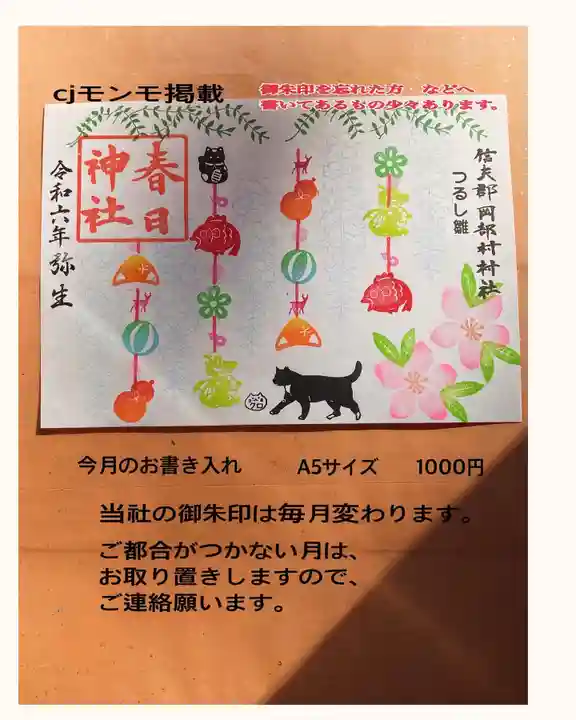 cjモンモ掲載
御朱印を忘れた方 などへ
書いてあるもの少々あります。
春日
神社
令和六年 弥生
信夫郡岡部村村社
つるし雛
クロ
今月のお書き入れ A5サイズ 1000円
当社の御朱印は毎月変わります。
ご都合がつかない月は、
お取り置きしますので、
ご連絡願います。